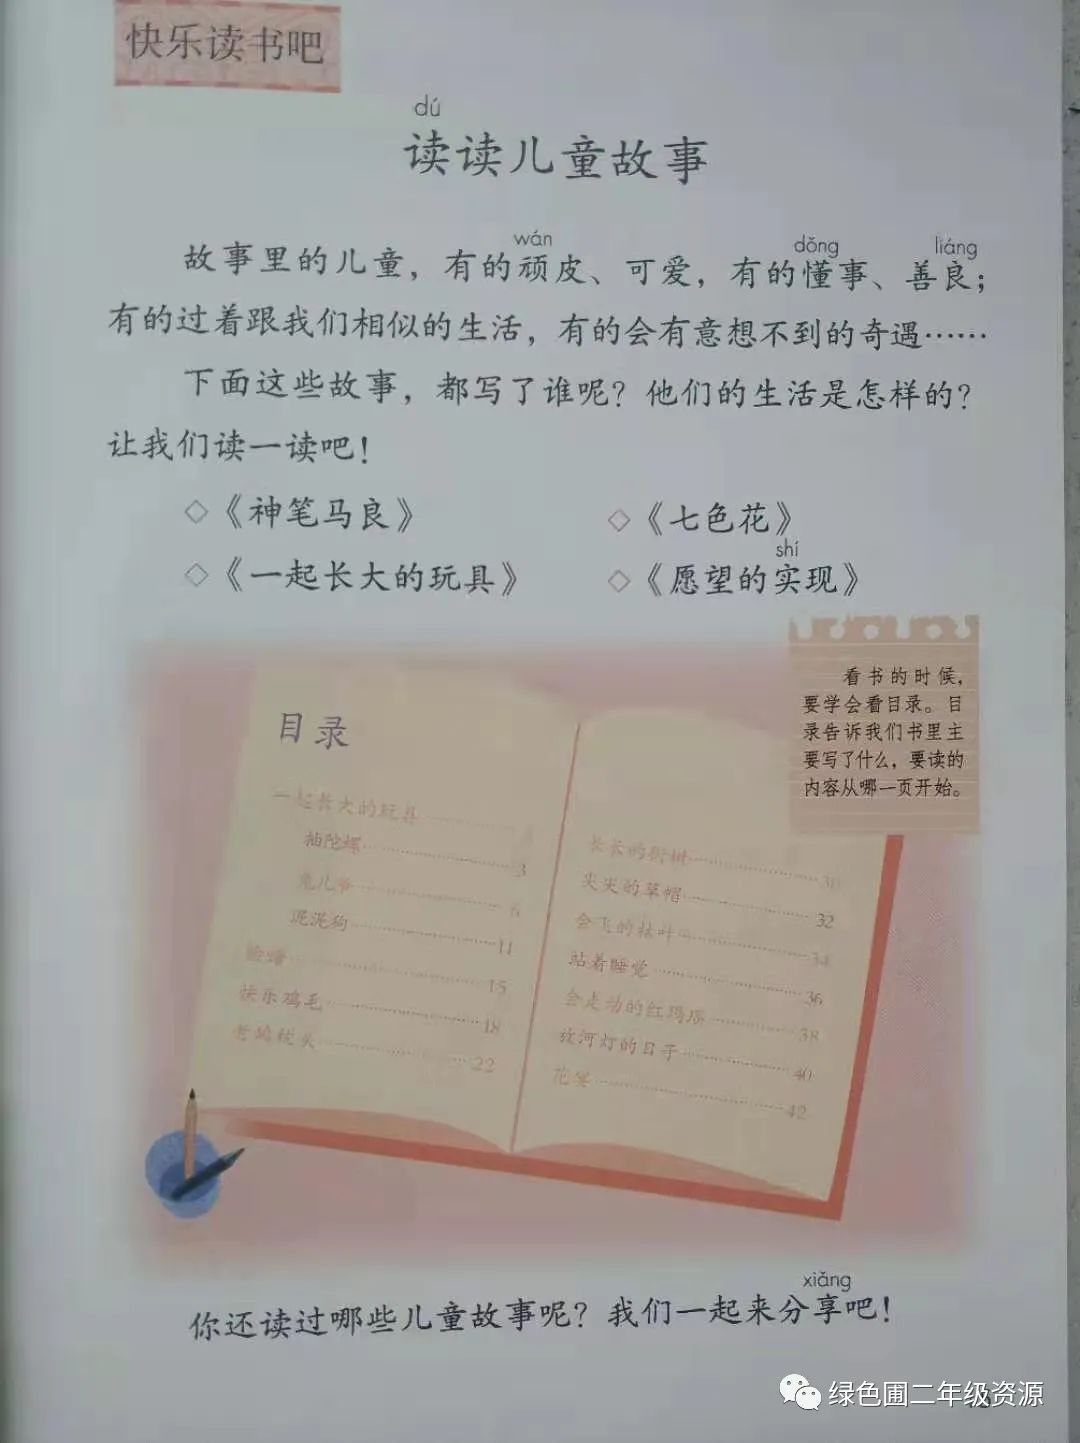 快乐读书吧
dú
读读儿童故事
wán dǒng liáng
故事里的儿童，有的顽皮、可爱，有的懂事、善良；
有的过着跟我们相似的生活，有的会有意想不到的奇遇……
下面这些故事，都写了谁呢？他们的生活是怎样的？
让我们读一读吧！
◇《神笔马良》 ◇《七色花》
shí
◇《一起长大的玩具》 ◇《愿望的实现》
看书的时候，
要学会看目录。目
录告诉我们书里主
要写了什么，要读的
内容从哪一页开始。
目录
一起长大的玩具
抽陀螺……3
兔儿爷……6
泥泥狗……11
15
快乐鸡毛……18
老鸹枕头……22
长长的街树……30
尖尖的草帽……32
会飞的……34
站着睡觉……36
会走动的红玛瑙……38
放河灯的日子……40
42
xiǎng
你还读过哪些儿童故事呢？我们一起来分享吧！
绿色圃二年级资源